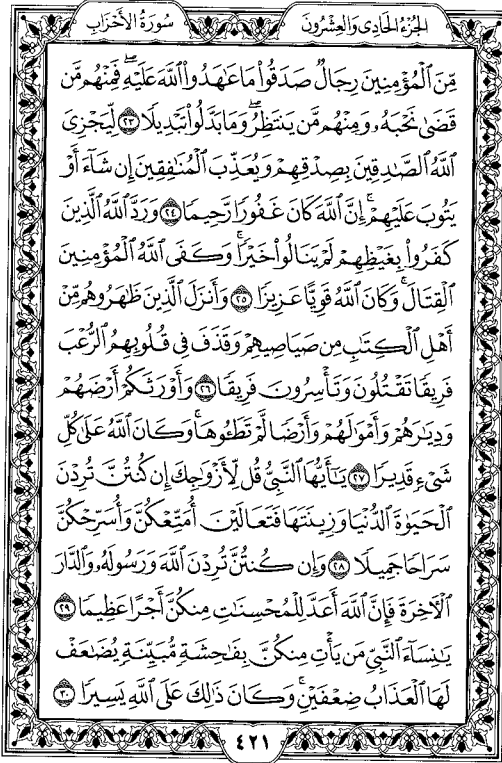 الجزء الحادى والعشرون
سورة الأحزاب
مِّنَ ٱلْمُؤْمِنِينَ رِجَالٌ صَدَقُوا۟ مَا عَٰهَدُوا۟ ٱللَّهَ عَلَيْهِ ۖ فَمِنْهُم مَّن
قَضَىٰ نَحْبَهُۥ وَمِنْهُم مَّن يَنتَظِرُ ۖ وَمَا بَدَّلُوا۟ تَبْدِيلًا ٢٣ لِّيَجْزِىَ
ٱللَّهُ ٱلصَّٰدِقِينَ بِصِدْقِهِمْ وَيُعَذِّبَ ٱلْمُنَٰفِقِينَ إِن شَآءَ أَوْ
يَتُوبَ عَلَيْهِمْ ۚ إِنَّ ٱللَّهَ كَانَ غَفُورًا رَّحِيمًا ٢٤ وَرَدَّ ٱللَّهُ ٱلَّذِينَ
كَفَرُوا۟ بِغَيْظِهِمْ لَمْ يَنَالُوا۟ خَيْرًا ۚ وَكَفَى ٱللَّهُ ٱلْمُؤْمِنِينَ
ٱلْقِتَالَ ۚ وَكَانَ ٱللَّهُ قَوِيًّا عَزِيزًا ٢٥ وَأَنزَلَ ٱلَّذِينَ ظَٰهَرُوهُم مِّنْ
أَهْلِ ٱلْكِتَٰبِ مِن صَيَاصِيهِمْ وَقَذَفَ فِى قُلُوبِهِمُ ٱلرُّعْبَ
فَرِيقًا تَقْتُلُونَ وَتَأْسِرُونَ فَرِيقًا ٢٦ وَأَوْرَثَكُمْ أَرْضَهُمْ
وَدِيَٰرَهُمْ وَأَمْوَٰلَهُمْ وَأَرْضًا لَّمْ تَطَـُٔوهَا ۚ وَكَانَ ٱللَّهُ عَلَىٰ كُلِّ
شَىْءٍ قَدِيرًا ٢٧ يَٰٓأَيُّهَا ٱلنَّبِىُّ قُل لِّأَزْوَٰجِكَ إِن كُنتُنَّ تُرِدْنَ
ٱلْحَيَوٰةَ ٱلدُّنْيَا وَزِينَتَهَا فَتَعَالَيْنَ أُمَتِّعْكُنَّ وَأُسَرِّحْكُنَّ
سَرَاحًا جَمِيلًا ٢٨ وَإِن كُنتُنَّ تُرِدْنَ ٱللَّهَ وَرَسُولَهُۥ وَٱلدَّارَ
ٱلْءَاخِرَةَ فَإِنَّ ٱللَّهَ أَعَدَّ لِلْمُحْسِنَٰتِ مِنكُنَّ أَجْرًا عَظِيمًا ٢٩
يَٰنِسَآءَ ٱلنَّبِىِّ مَن يَأْتِ مِنكُنَّ بِفَٰحِشَةٍ مُّبَيِّنَةٍ يُضَٰعَفْ
لَهَا ٱلْعَذَابُ ضِعْفَيْنِ ۚ وَكَانَ ذَٰلِكَ عَلَى ٱللَّهِ يَسِيرًا ٣٠
٤٢١